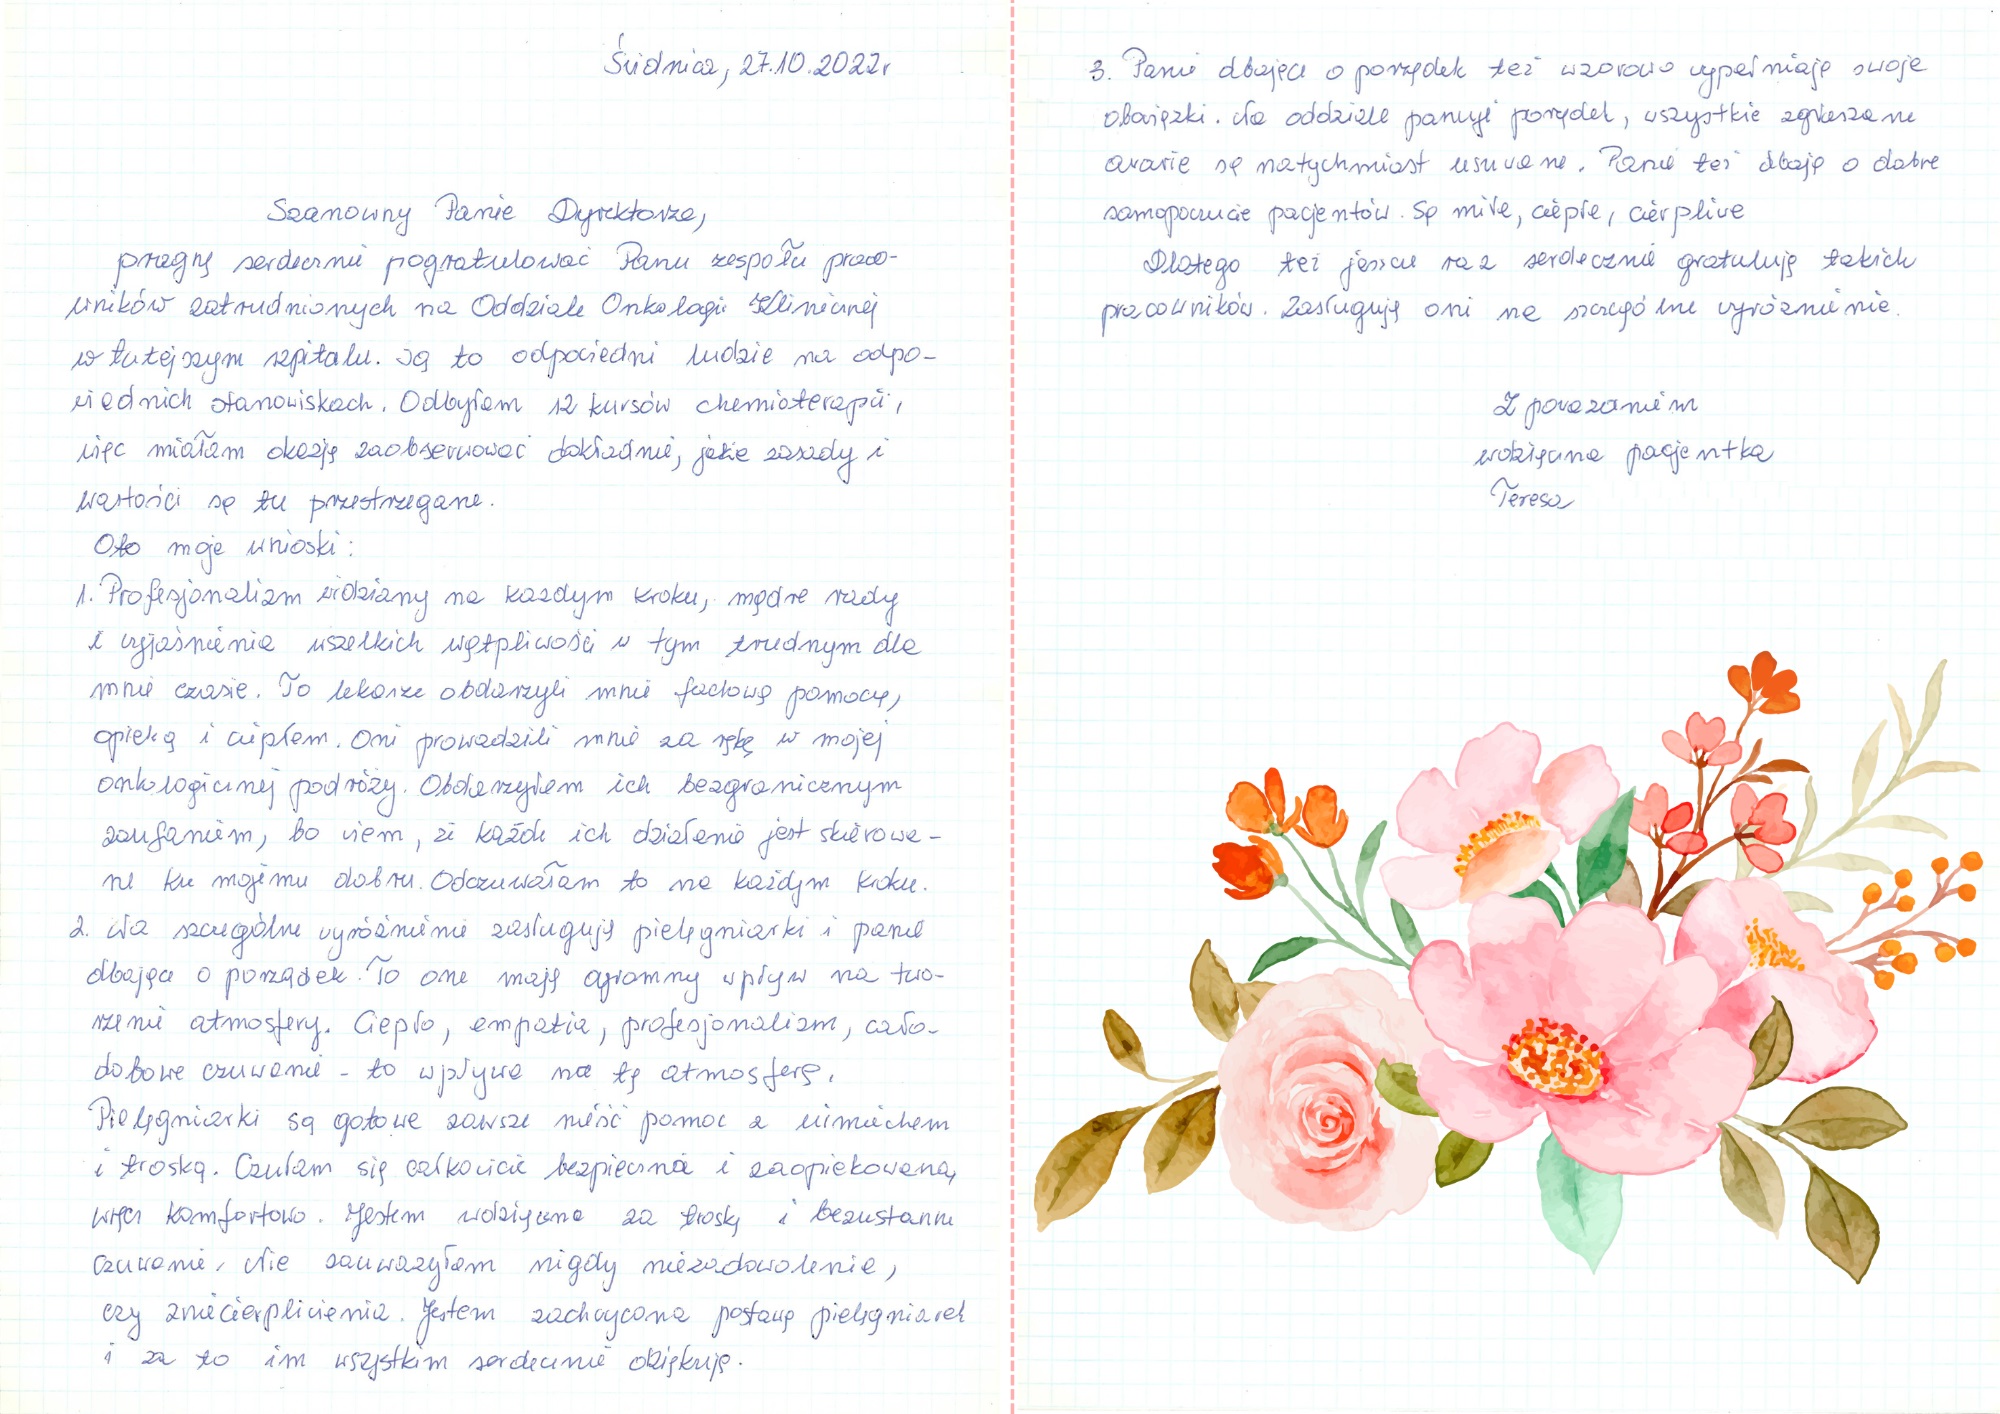 Świdnica, 27.10.2022r
Szanowny Panie Dyrektorze,
pragnę serdecznie pogratulować Panu zespołu praco-
wników zatrudnionych na Oddziale Onkologii Klinicznej
w tutejszym szpitalu. Są to odpowiedni ludzie na odpo-
wiednich stanowiskach. Odbyłam 12 kursów chemioterapii,
więc miałam okazję zaobserwować dokładnie, jakie zasady i
wartości są tu przestrzegane.
Oto moje wnioski:
1. Profesjonalizm widziany na każdym kroku, mądre rady
i wyjaśnienia wszelkich wątpliwości w tym trudnym dla
mnie czasie. To lekarze obdarzyli mnie fachową pomocą,
opieką i ciepłem. Oni prowadzili mnie za rękę w mojej
onkologicznej podróży. Obdarzyłam ich bezgranicznym
zaufaniem, bo wiem, że każde ich działanie jest skierowa-
ne ku mojemu dobru. Odczuwałam to na każdym kroku.
2. Na szczególne wyróżnienie zasługują pielęgniarki i panie
dbające o porządek. To one mają ogromny wpływ na two-
rzenie atmosfery. Ciepło, empatia, profesjonalizm, cało-
dobowe czuwanie - to wpływa na tę atmosferę.
Pielęgniarki są gotowe zawsze nieść pomoc z uśmiechem
i troską. Czułam się całkowicie bezpieczna i zaopiekowana,
więc komfortowo. Jestem wdzięczna za troskę i bezustanne
czuwanie. Nie zauważyłam nigdy niezadowolenie,
czy zniecierpliwienia. Jestem zachwycona postawą pielęgniarek
i za to im wszystkim serdecznie dziękuję.
3. Panie dbające o porządek też wzorowo wypełniają swoje
obowiązki. Na oddziale panuje porządek, wszystkie zgłaszane
awarie są natychmiast usuwane. Panie też dbają o dobre
samopoczucie pacjentów. Są miłe, ciepłe, cierpliwe
Dlatego też jeszcze raz serdecznie gratuluję takich
pracowników. Zasługują oni na szczególne wyróżnienie.
Z poważaniem
wdzięczna pacjentka
Teresa